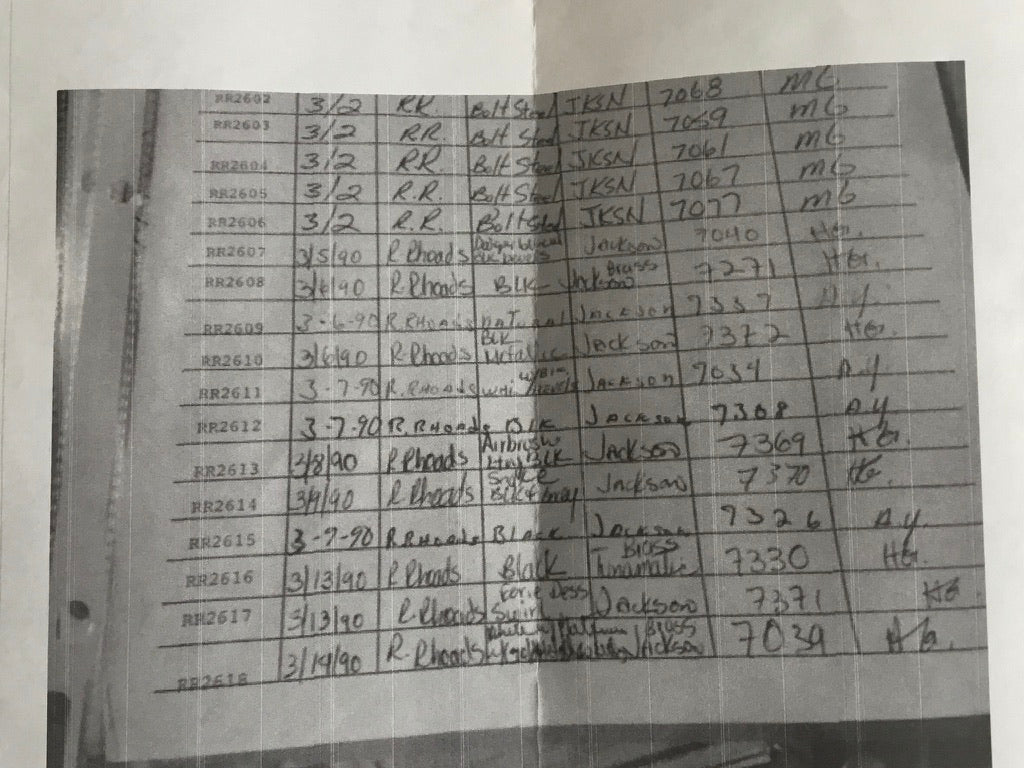 RR2602 3/2 R.R. Bolt Steel JKSN 7068 MG
RR2603 3/2 R.R. Bolt Steel JKSN 7059 MG
RR2604 3/2 R.R. Bolt Steel JKSN 7061 MG
RR2605 3/2 R.R. Bolt Steel JKSN 7067 MG
RR2606 3/2 R.R. Bolt Steel JKSN 7077 MG
RR2607 3/5/90 R Rhoads Jackson 7040 HG.
RR2608 3/6/90 R.Rhoads BLK Brass Jackson 7271 HG.
RR2609 3-6-90 R.Rhoads natural Jackson 7337 A.Y.
RR2610 3/6/90 R.Rhoads BLK Metallic Jackson 7372 HG.
RR2611 3-7-90 R.Rhoads WHI Jackson 7034 A.Y.
RR2612 3-7-90 R.Rhoads BLK Jackson 7308 A.Y.
RR2613 3/8/90 R Rhoads Airbrush Jackson 7369 HG.
RR2614 3/9/90 R.Rhoads Snake BLK + Grey Jackson 7370 HG.
RR2615 3-9-90 R.Rhoads Black Jackson 7326 A.Y.
RR2616 3/13/90 R Rhoads Black Brass 7330 HG.
RR2617 3/13/90 R.Rhoads Swirl Jackson 7371 HG
RR2618 3/14/90 R.Rhoads White w/ Platinum Brass Jackson 7039 HG.